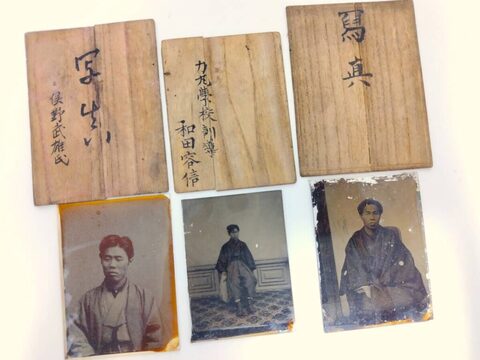 写真
俣野武雄氏
力丸學校訓導
和田容信
寫真